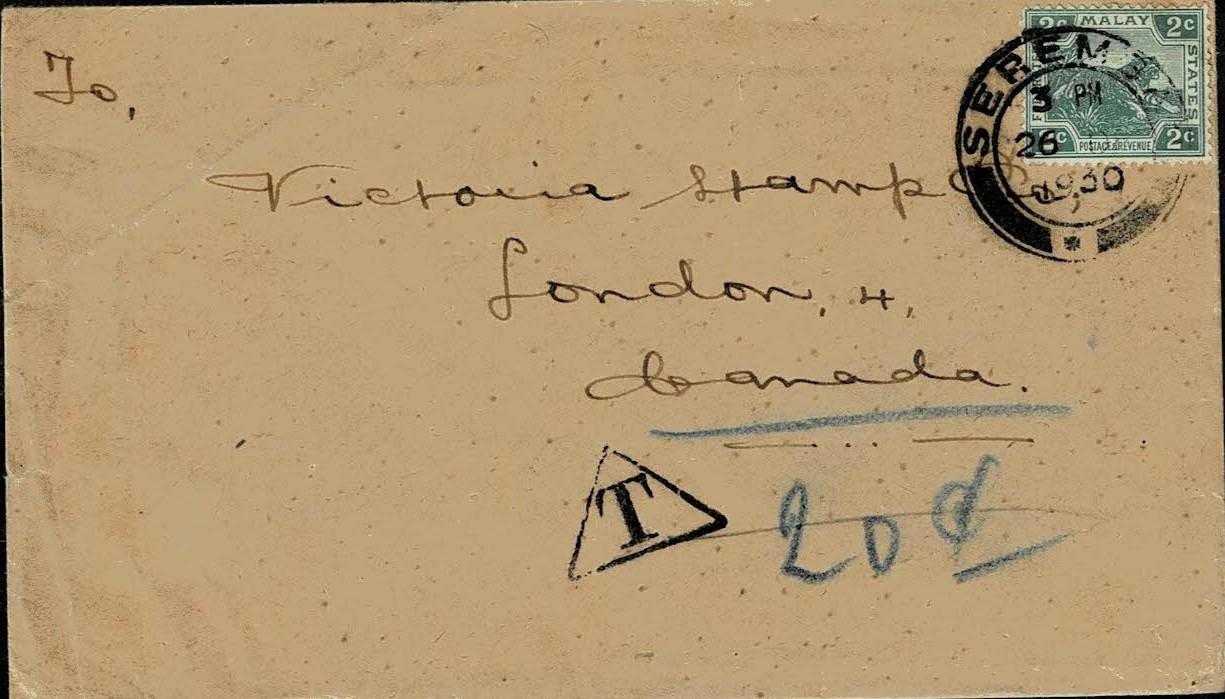 2c MALAY 2c
STATES
POSTAGE & REVENUE 2c
SEREMB
3 PM
26
1930
To,
Victoria Stamp Co
London, 4,
Canada.
T
20¢